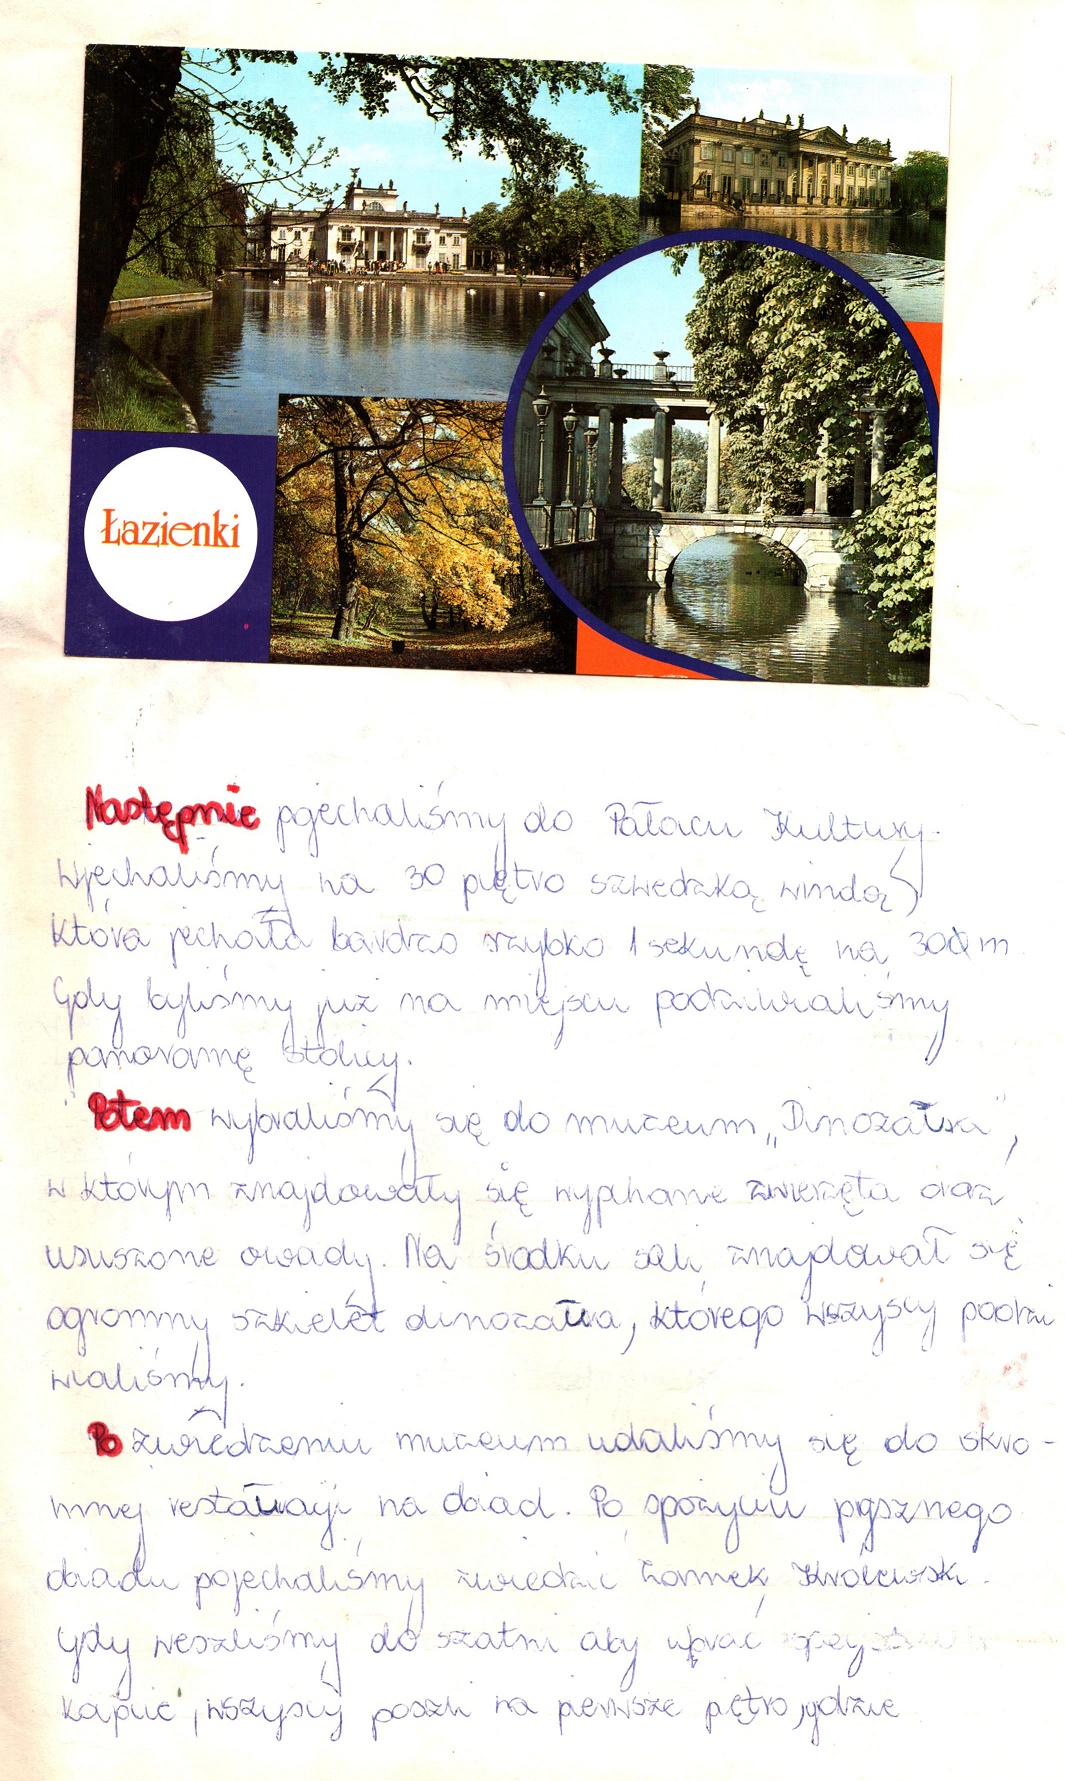 Łazienki
Następnie pojechaliśmy do Pałacu Kultury.
Wjechaliśmy na 30 piętro szwedzką windą,
która jechała bardzo szybko 1 sekundę na 300 m.
Gdy byliśmy już na miejscu podziwialiśmy
panoramę stolicy.
Potem wybraliśmy się do muzeum „Dinozaura",
w którym znajdowały się wypchane zwierzęta oraz
ususzone owady. Na środku sali znajdował się
ogromny szkielet dinozaura, którego wszyscy podzi
wialiśmy.
Po zwiedzeniu muzeum udaliśmy się do skro-
mnej restauracji na obiad. Po spożyciu pysznego
obiadu pojechaliśmy zwiedzić Zamek Królewski.
Gdy weszliśmy do szatni aby ubrać
kapcie, wszyscy poszli na pierwsze piętro, gdzie